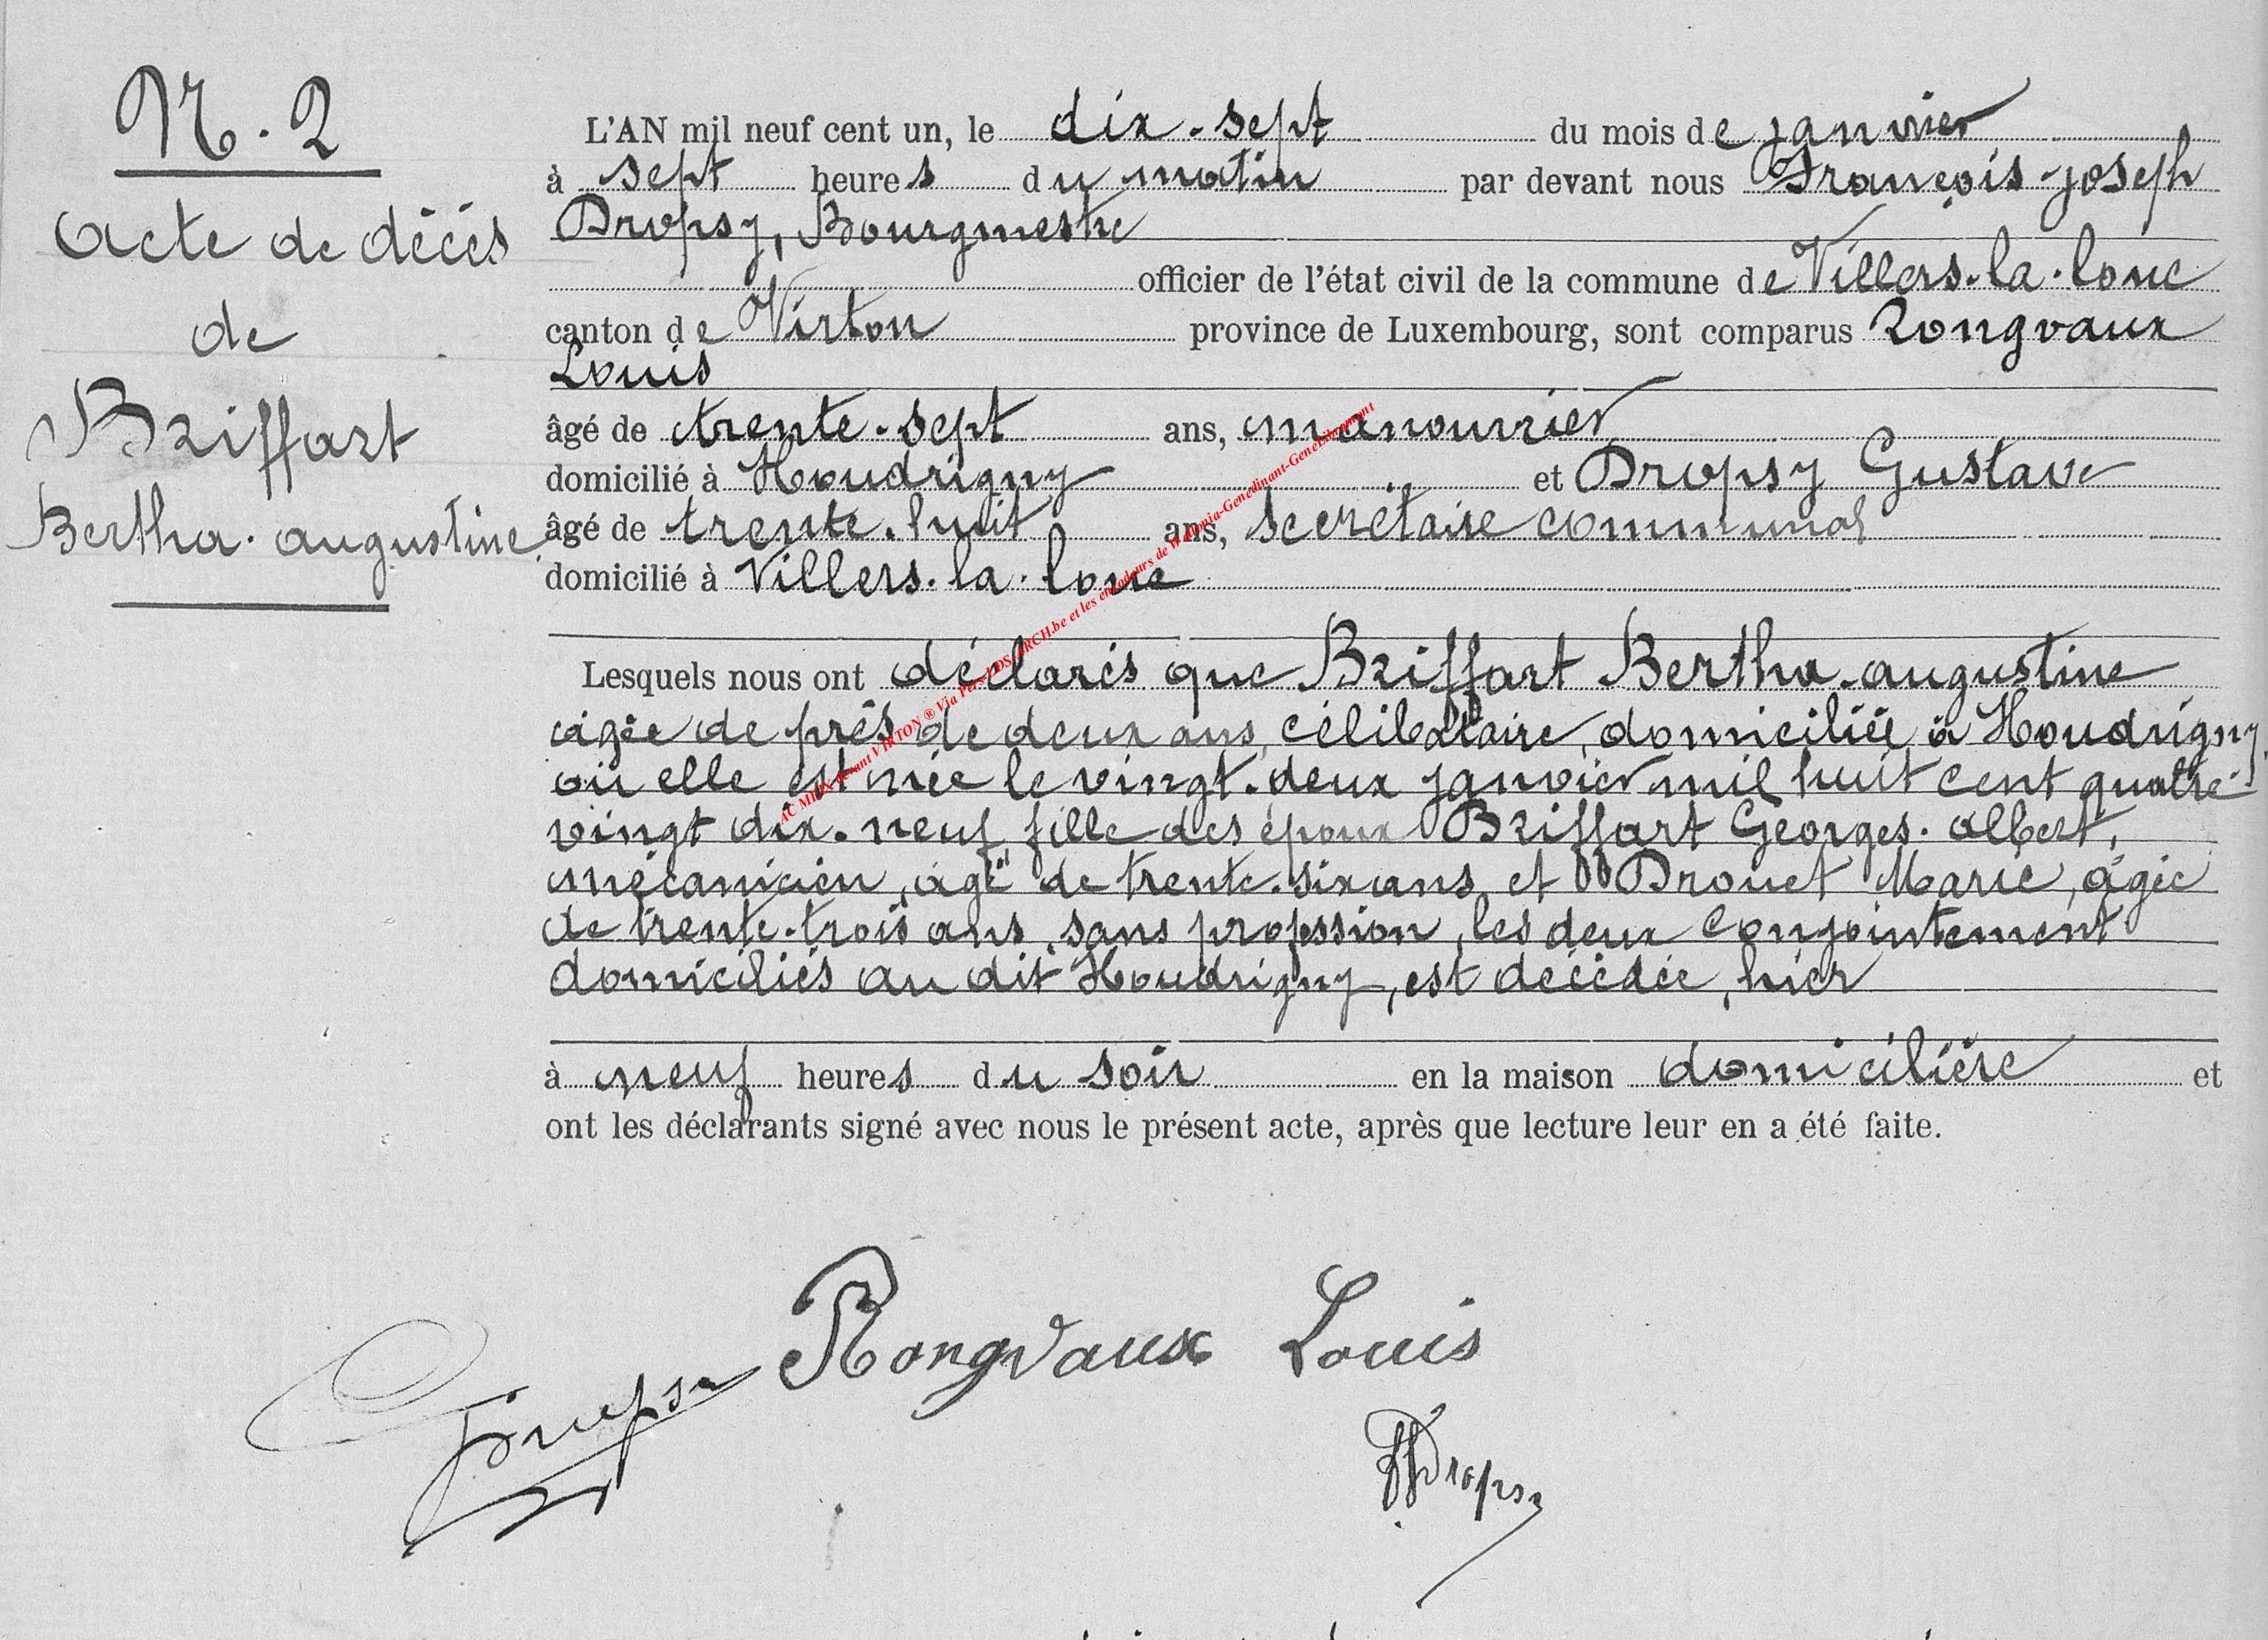 N. 2
Acte de décès
de
Briffart
Bertha. augustine
L'AN mil neuf cent un, le dix-sept du mois de janvier
à sept heures du matin par devant nous François-joseph
Dropsy, Bourgmestre
officier de l'état civil de la commune de Villers-la-loue
canton de Virton province de Luxembourg, sont comparus Rongvaux
Louis
âgé de trente-sept ans, manouvrier
domicilié à Houdrigny et Dropsy Gustave
âgé de trente-huit ans, secrétaire communal
domicilié à Villers-la-loue
Lesquels nous ont déclarés que Briffart Bertha-augustine
agée de près de deux ans, célibataire, domiciliée à Houdrigny
où elle est née le vingt-deux janvier mil huit cent quatre-
vingt dix-neuf, fille des époux Briffart Georges-albert,
mécanicien, agé de trente-six ans et Drouet Marie, âgée
de trente-trois ans, sans profession, les deux conjointement
domiciliés au dit Houdrigny, est décédée, hier
à neuf heures du soir en la maison domicilière et
ont les déclarants signé avec nous le présent acte, après que lecture leur en a été faite.
Rongvaux Louis
Dropsy
Dropsy